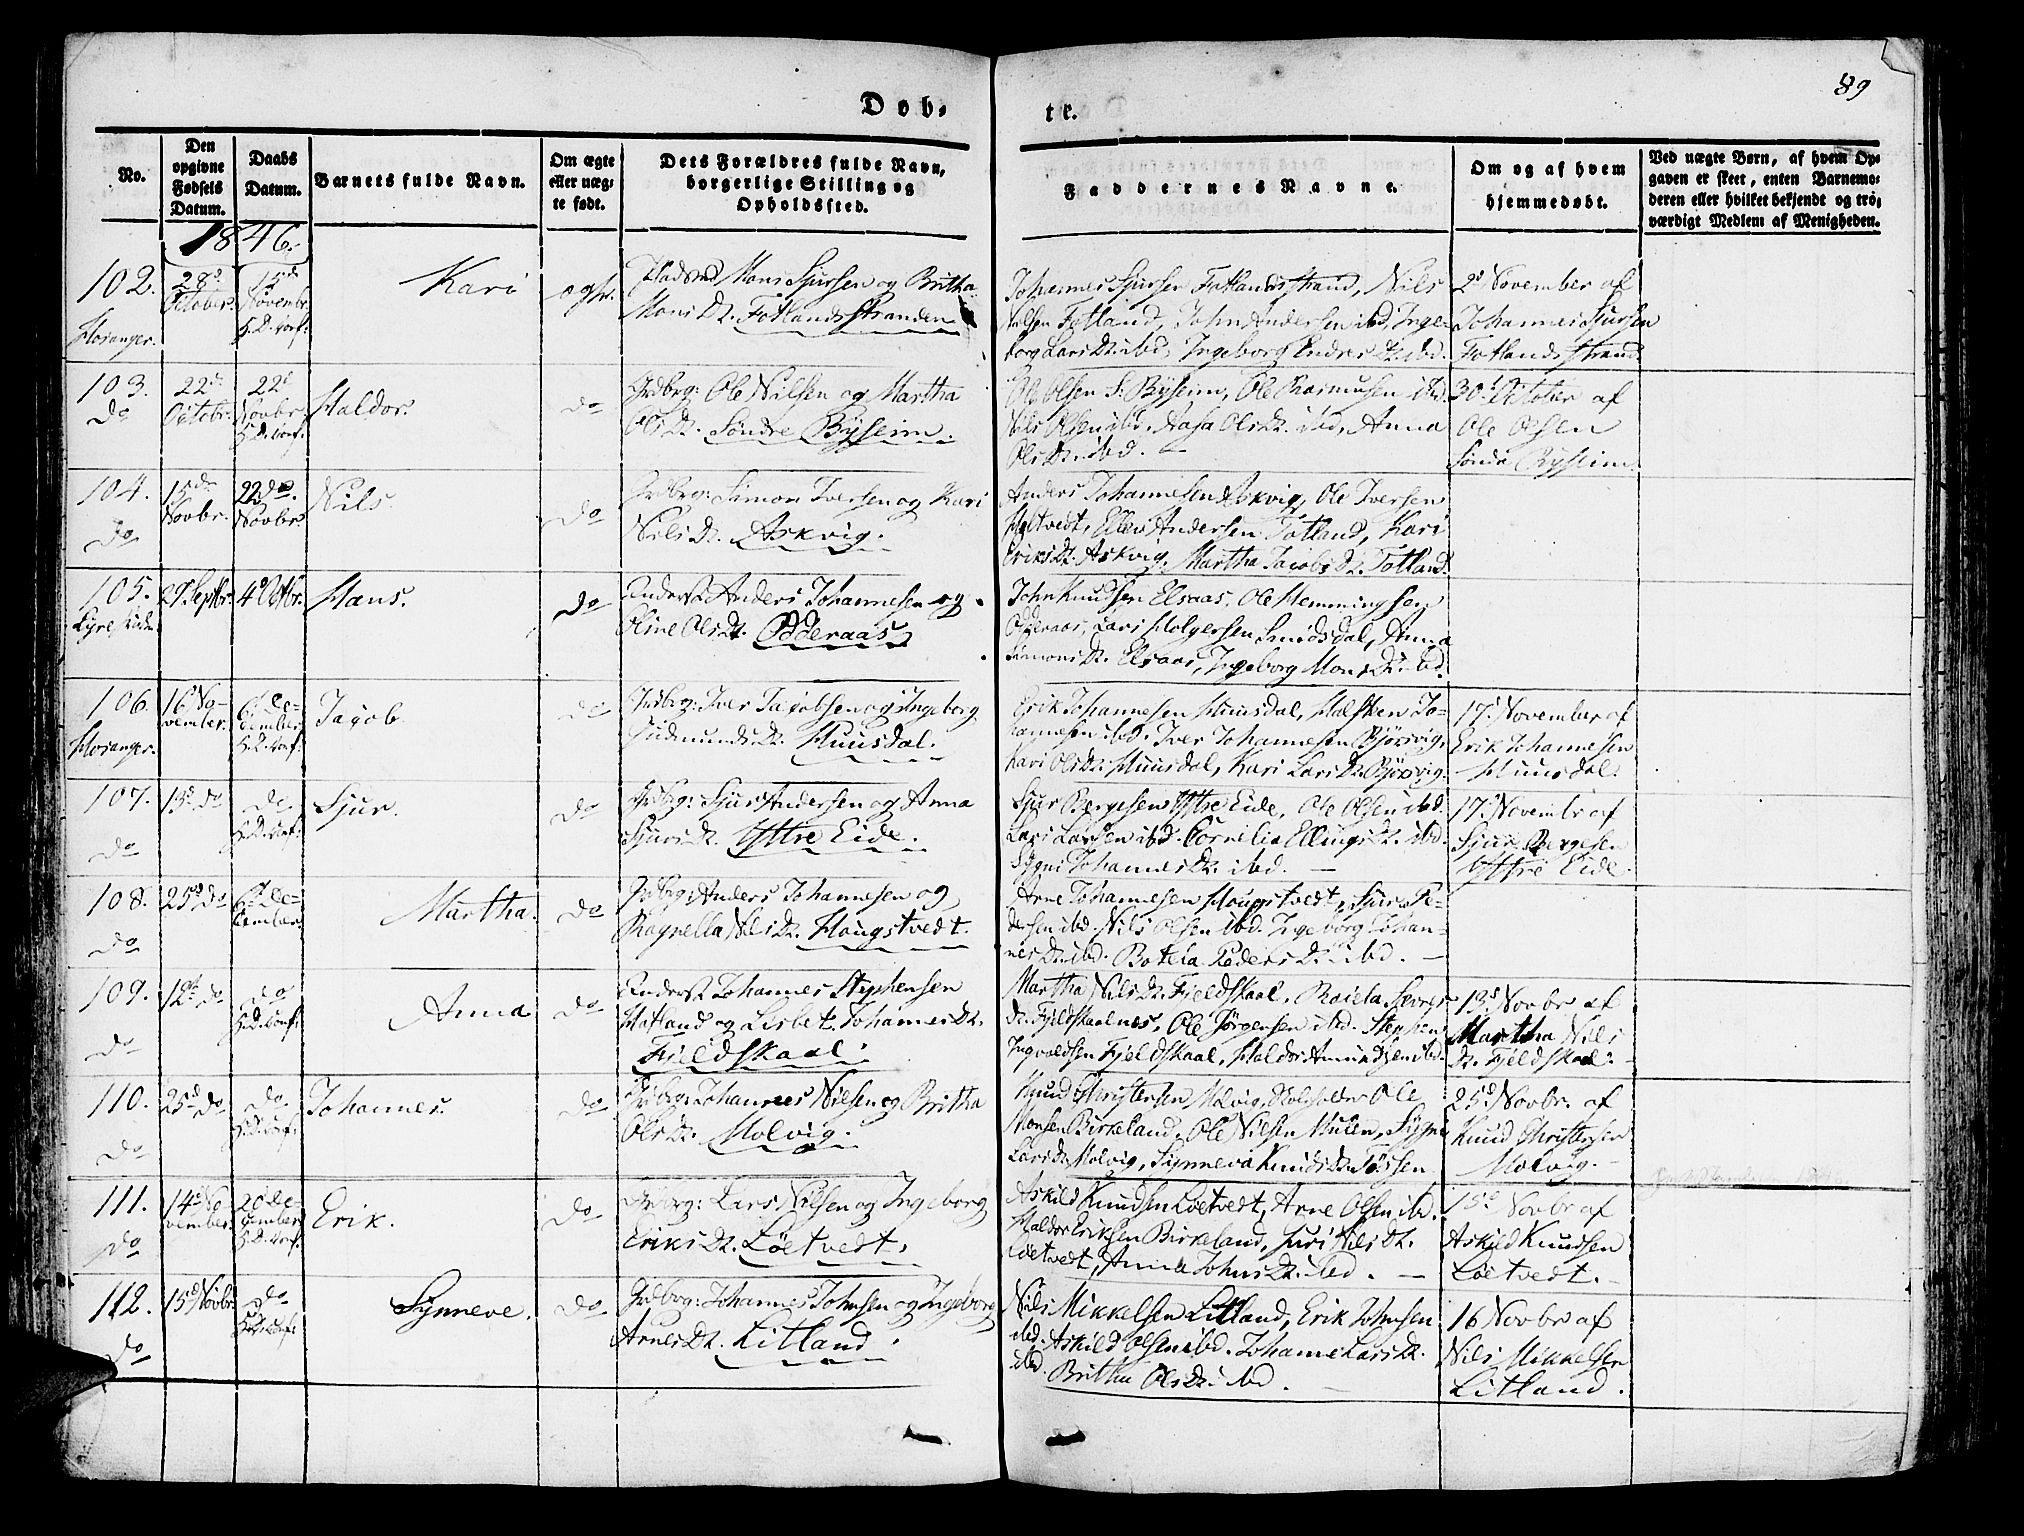 89
Døb-
te.
No.
Den
opgivne
Fødsels
Datum.
Daabs
Datum.
Barnets fulde Navn.
Om ægte
eller uæg-
te født.
Dets Forældres fulde Navn,
borgerlige Stilling og
Opholdssted.
Faddernes Navne.
Om og af hvem
hjemmedøbt.
Ved uægte Børn, af hvem Op-
gaven er skeet, enten Barnemo-
deren eller hvilket bekjendt og tro-
værdigt Medlem af Menigheden.
1846.
102.
Hosanger.
28d
October.
15de
Novembr.
Kari
Mons Sjursen og Britha
Mons Dt. Fotlandsstranden
Johannes Sjursen Fotlandsstrand, Nils
Nilsen Fotland, John Andersen ibd, Inge-
borg Lars Dt. ibd, Ingeborg Endres Dt. ibd.
2d November af
Johannes Sjursen
Fotlandsstrand
103.
Do
22d
Octobr.
22d
Novbr.
Haldor.
do
Grdbrg: Ole Nilsen og Martha
Ols Dt. Søndre Byseim.
Ole Olsen S. Byseim, Ole Rasmusen ibd.
Nils Olsen ibd, Aasa Ols Dt. ibd, Anna
Ols Dt. ibd.
30d October af
Ole Olsen
Søndre Byseim.
104.
Do
15de
Novbr.
22de
Novbr
Nils.
do
Grdbrg: Simon Iversen og Kari
Nils Dt. Askvig.
Anders Johannesen Askvig, Ole Iversen
Holtvedt, Ellev Andersen Totland, Kari
Eriks Dt. Askvig, Martha Jacobs Dt. Totland.
105.
29 Septbr.
4d Octbr.
Hans.
do
Anders Johannesen og
Oline Ols Dt. Odderaas
John Knudsen Elsaas, Ole Hemmingsen
Odderaas, Lars Holgersen Smidsdal, Anna
Simons Dt. Elsaas, Ingeborg Mons Dt. ibd.
106.
Hosanger.
16 No-
vember.
6 De-
cember
Jacob
do
Grdbrg: Iver Jacobsen og Ingeborg
Gudmunds Dt. Huusdal.
Erik Johannesen Huusdal, Halsten Jo-
hannesen ibd. Iver Johannesen Bjørsvig,
Kari Ols Dt. Huusdal, Kari Lars Dt. Bjørsvig.
17d November af
Erik Johannesen
Huusdal.
107.
do
13d do
do
Sjur.
do
Grdbrg: Sjur Andersen og Anna
Sjurs Dt. Yttre Eide.
Sjur Bergesen Yttre Eide, Ole Olsen ibd.
Lars Larsen ibd. Cornelia Ellings Dt. ibd.
Sygni Johannes Dt. ibd.
17d November af
Sjur Bergesen
Yttre Eide.
108.
do
25d do
6 De-
cember.
Martha.
do
Grdbrg: Anders Johannesen og
Ragnella Nils Dt. Hougstvedt.
Arne Johannesen Hougstvedt, Sjur Pe-
dersen ibd. Nils Olsen ibd. Ingeborg Johan-
nes Dt. ibd. Botela Peders Dt. ibd.
109.
do
12d do
do
Anna
do
Johannes Stephensen
Hatland og Lisbet Johannes Dt.
Fjeldskaal.
Martha Nils Dt. Fjeldskaal,
Dt. Fjeldskaalnes, Ole Jørgensen ibd. Stephen
Ingvaldsen Fjeldskaal, Haldor Amundsen ibd.
13d Novbr af
Martha Nils
Dt. Fjeldskaal.
110.
do
25d do
do
Johannes.
do
Grdbrg: Johannes Nilsen og Britha
Ols Dt. Molvig.
Knud Christensen Molvig, Ole
Monsen Birkeland, Ole Nilsen Mulen, Sygni
Lars Dt. Molvig, Synneva Knuds Dt. Tøssen
25d Novbr. af
Knud Christensen
Molvig.
111.
do
14d No-
vember.
20 De-
cember
Erik.
do
Grdbrg: Lars Nilsen og Ingeborg
Eriks Dt. Løetvedt.
Askild Knudsen Løetvedt, Arne Olsen ibd.
Haldor Eriksen Birkeland, Guri Nils Dt.
Løetvedt, Anna Johns Dt. ibd.
15d Novbr af
Askild Knudsen
Løetvedt.
112.
do
15d Novbr.
do
Synneve.
do
Grdbrg: Johannes Johnsen og Ingeborg
Arnes Dt. Litland.
Nils Mikkelsen Litland, Erik Johnsen
ibd. Askild Olsen ibd. Johanne Lars Dt.
ibd. Britha Ols Dt. ibd.
16 Novbr af
Nils Mikkelsen
Litland.